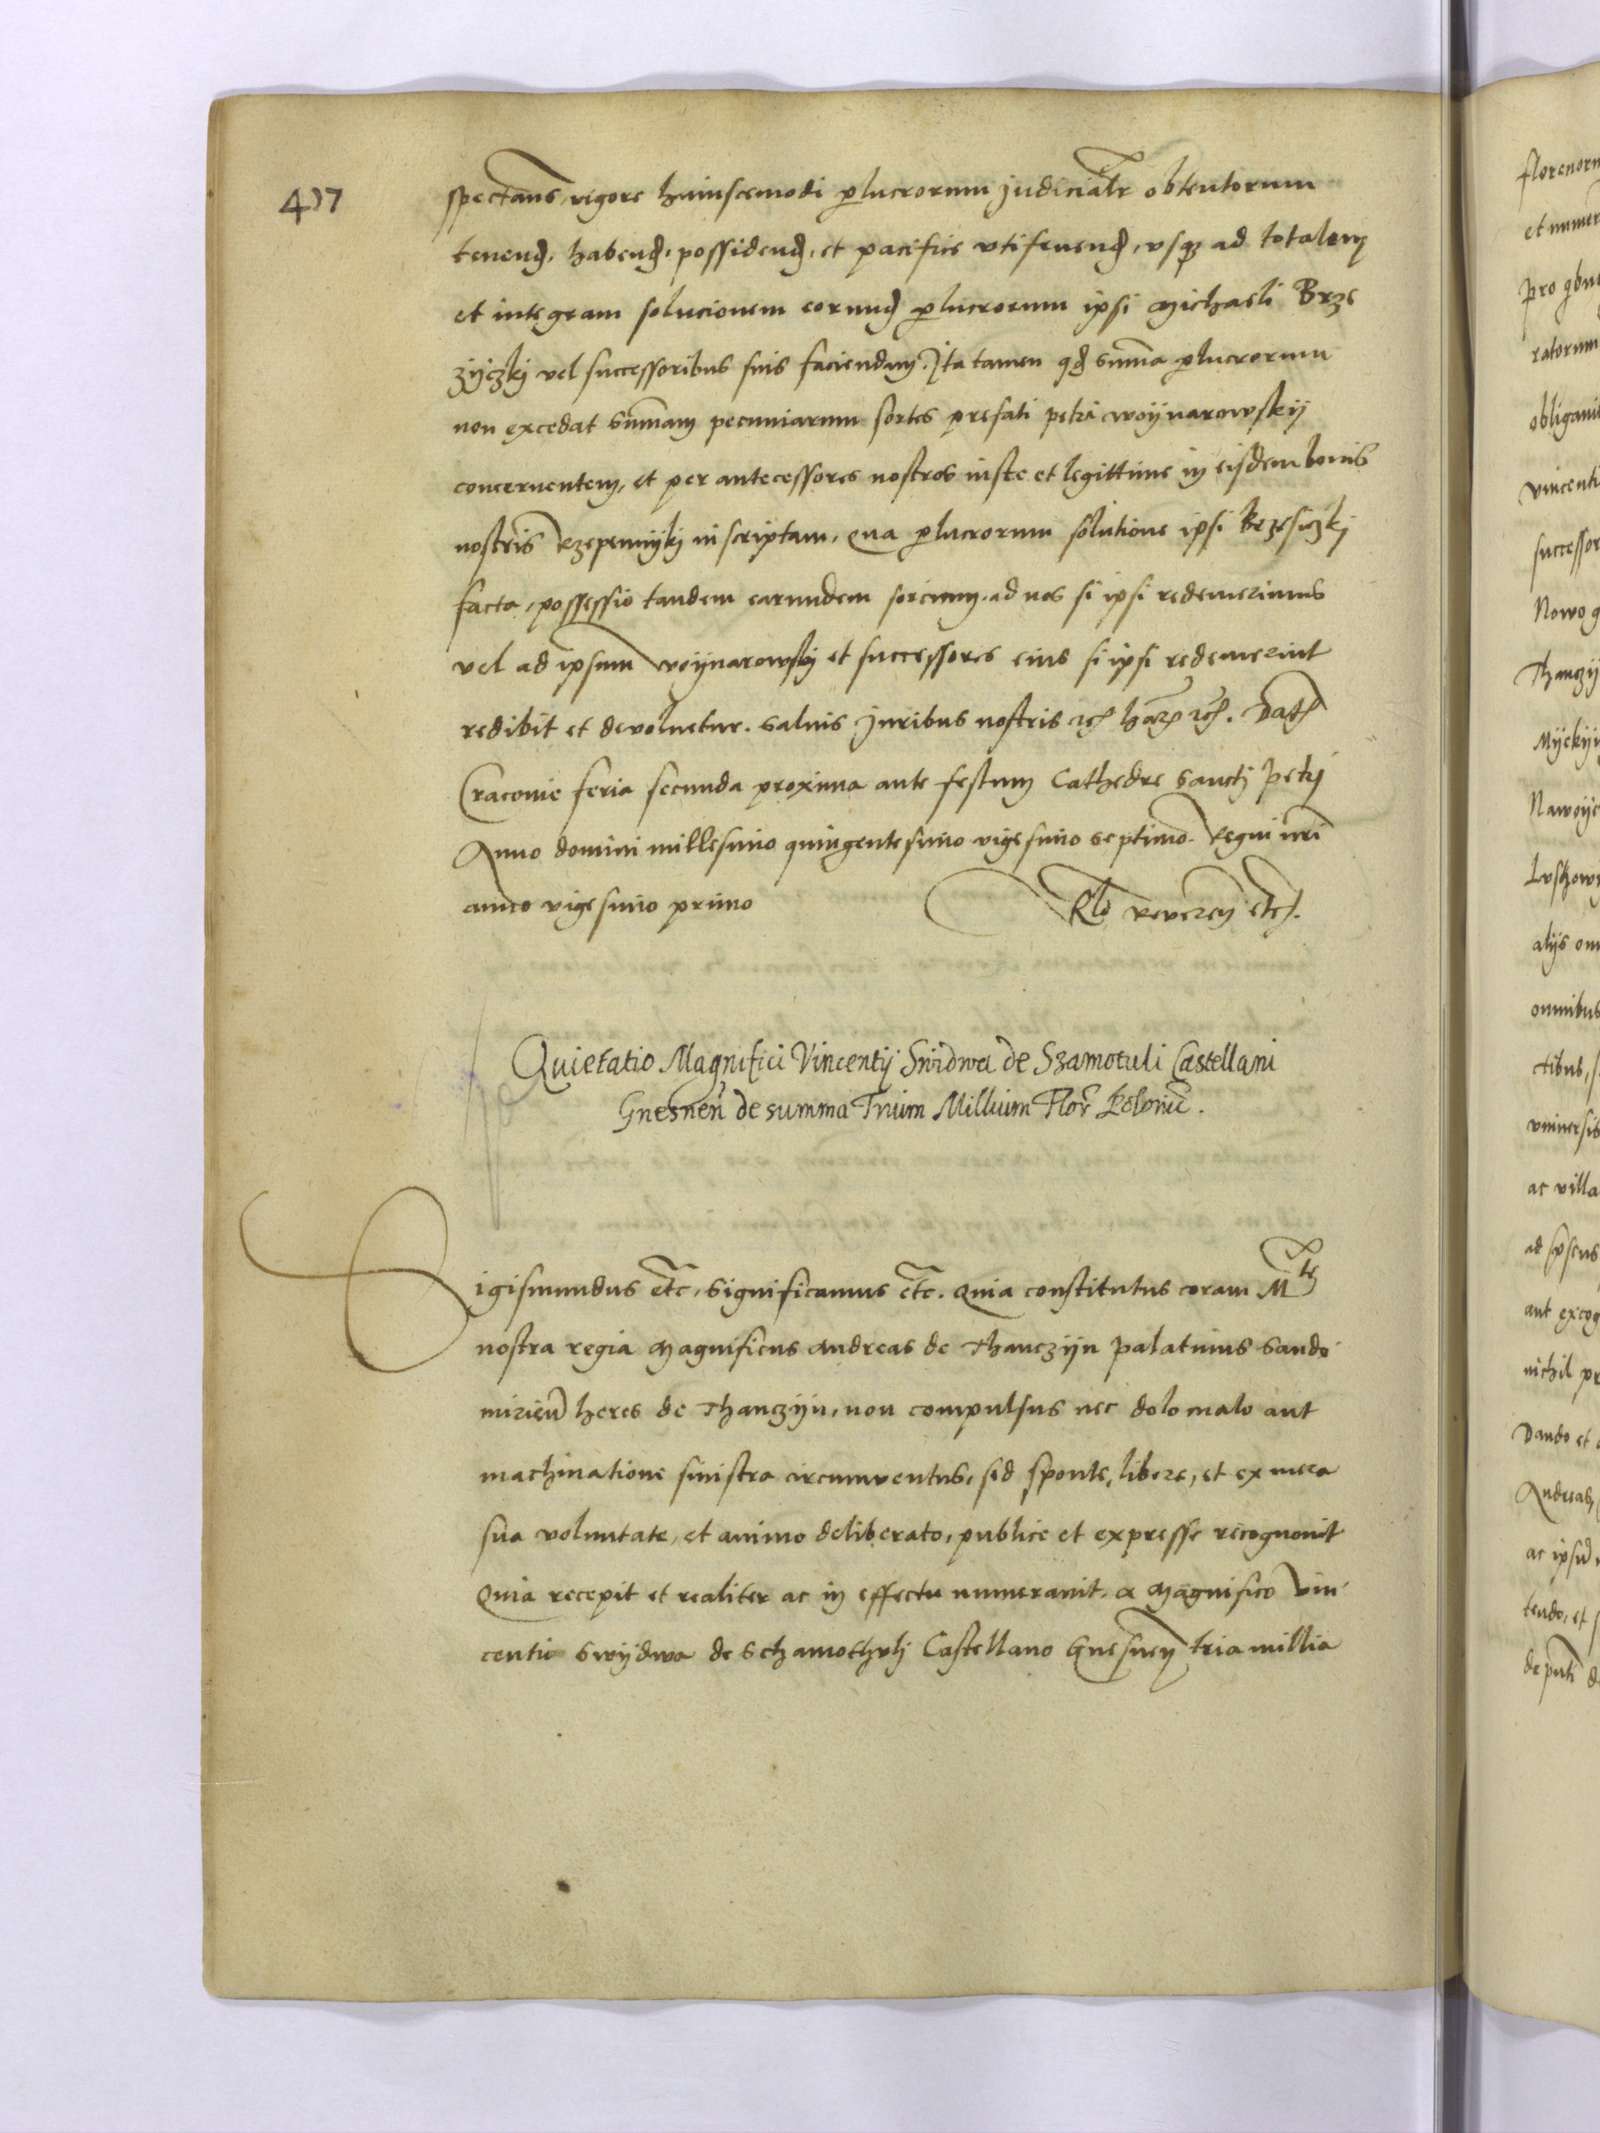 437
spectans, vigore huiuscemodi plucrorum judicialr obtentorum
tenend, habend, possidend, et pacifice vtifruend, vsq ad totalem
et integram solucionem eorund plucrorum ipsi Michaeli Brze
zyczkj vel successoribus suis faciendam. Ita tamen qd summa plucrorum
non excedat summam pecuniarum sortes prefati petri woynarowskij
concernentem, et per antecessores nostros iuste et legittime in eisdem bonis
nostris Rzepennykj inscriptam, qua plucrorum solutione ipsi Brzesiczkj
facta, possessio tandem earundem sorcium, ad nos si ipsi redemerimus
vel ad ipsum woynarowskj et successores eius si ipsi redemerint
redibit et devoluetur. Saluis Juribus nostris etc harum etc. Dat
Cracovie feria secunda proxima ante festum Cathedre Sanctj Petrj
Anno domini millesimo quingentesimo vigesimo septimo. Regni nri
anno vigesimo primo
Rlo Reveren etc.
Quietatio Magnifici Vincentij Swidwa de Szamotuli Castellani
Gnesnen de summa Trium Millium Flor Polonic.
Sigismundus etc, Significamus etc. Quia constitutus coram Mte
nostra regia Magnificus Andreas de Thanczyn palatinus Sando
mirien heres de Thanczyn, non compulsus nec dolo malo aut
machinatione sinistra circumventus, sed sponte, libere, et ex mera
sua voluntate, et animo deliberato, publice et expresse recognouit
Quia recepit et realiter ac in effectu numerauit, a Magnifico Vin
centio Swydwa de Schamothulj Castellano Gnesnen tria millia
florenorum
et numer
pro qbus
ratorum
vincenti
successor
Nowo
Thanczy
omnibus
ctibus,
vniuersis
ac villa
ad ipsens
aut excog
nichil pr
Dando et
Andreas
tendo, et